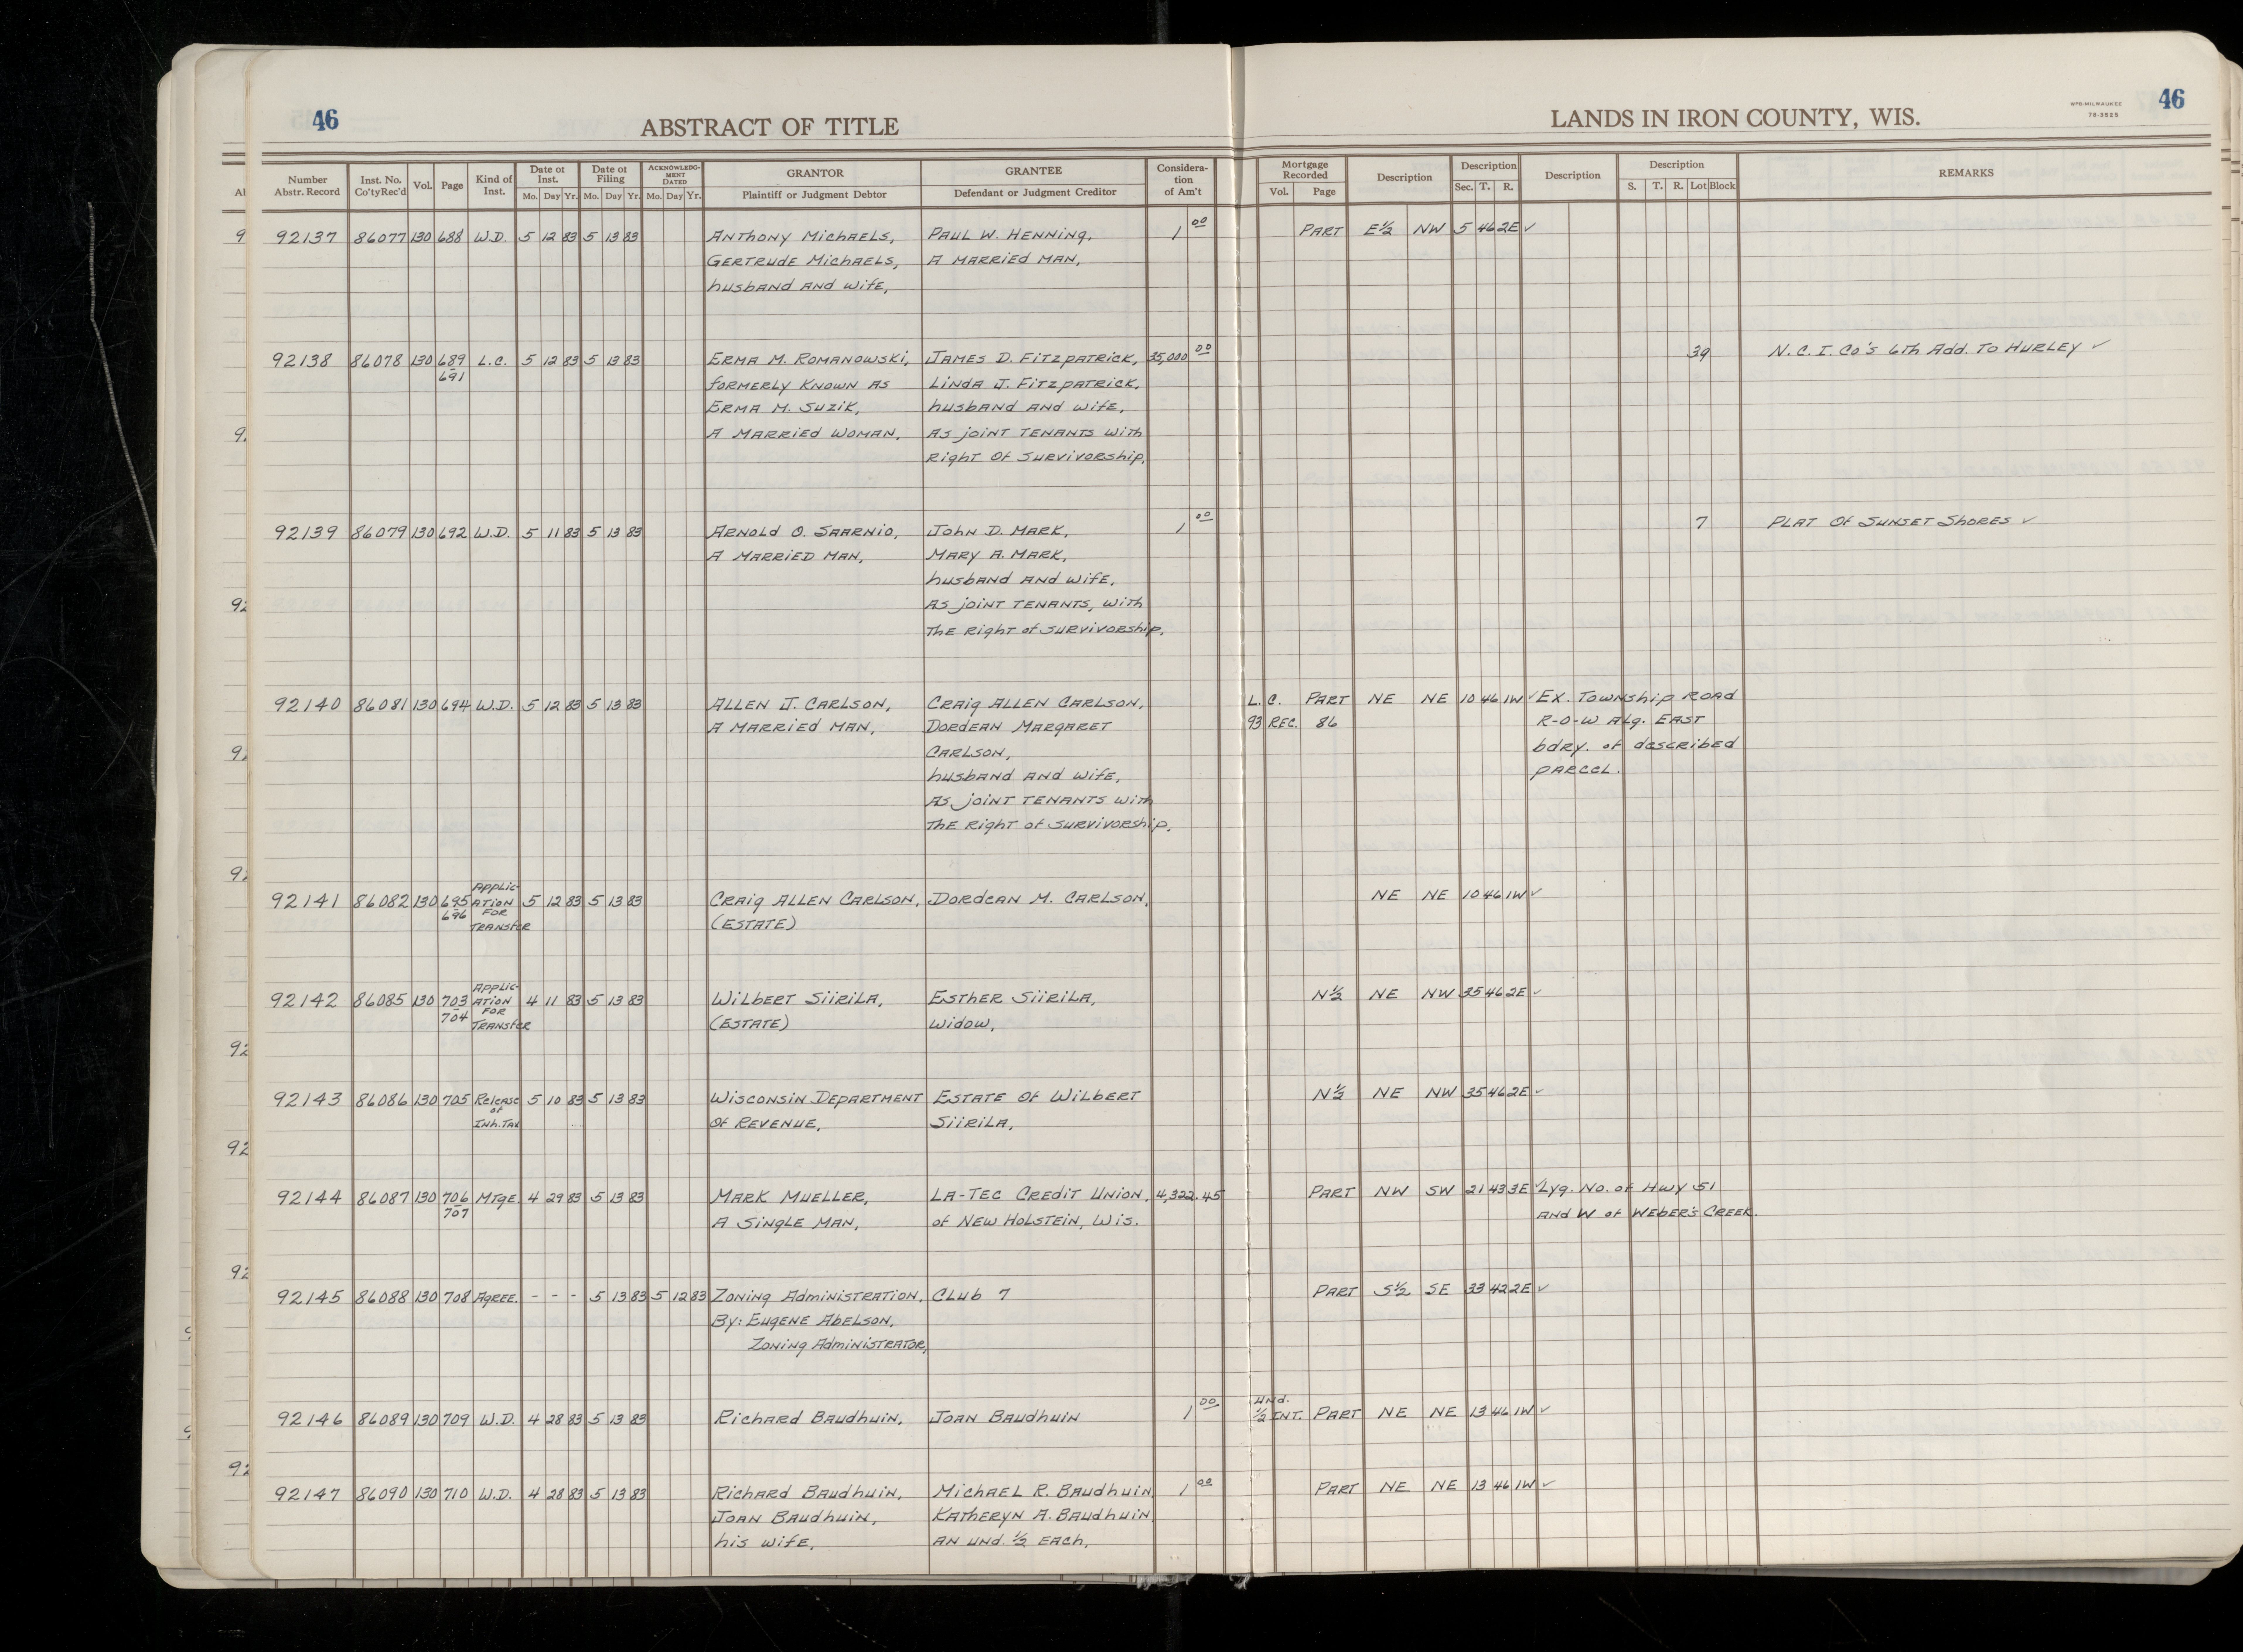 46
ABSTRACT OF TITLE
LANDS IN IRON COUNTY, WIS.
WPB-MILWAUKEE
78-3525
46
Number Abstr. Record | Inst. No. Co'ty Rec'd | Vol. | Page | Kind of Inst. | Date of Inst. Mo. Day Yr. | Date of Filing Mo. Day Yr. | ACKNOWLEDG-MENT DATED Mo. Day Yr. | GRANTOR Plaintiff or Judgment Debtor | GRANTEE Defendant or Judgment Creditor | Considera-tion of Am't | Mortgage Recorded Vol. Page | Description | Description Sec. T. R. | Description | Description S. T. R. Lot Block | REMARKS
92137 86077 130 688 W.D. 5 12 83 5 13 83 Anthony Michaels, Paul W. Henning, 1 00 Part E½ NW 5 46 2E ✓
Gertrude Michaels, A married man,
husband and wife,
92138 86078 130 689 L.C. 5 12 83 5 13 83 Erma M. Romanowski, James D. Fitzpatrick, 35,000 00 39 N.C.I. Co's 6th Add. To Hurley ✓
691 formerly known as Linda J. Fitzpatrick,
Erma M. Suzik, husband and wife,
A married woman, As joint tenants with
Right of survivorship,
92139 86079 130 692 W.D. 5 11 83 5 13 83 Arnold O. Saarnio, John D. Mark, 1 00 7 Plat of Sunset Shores ✓
A married man, Mary A. Mark,
husband and wife,
As joint tenants, with
the right of survivorship,
92140 86081 130 694 W.D. 5 12 83 5 13 83 Allen J. Carlson, Craig Allen Carlson, L.C. Part NE NE 10 46 1W ✓ Ex. Township Road
A married man, Dordean Margaret 93 Rec. 86 R-O-W alg. East
Carlson, bdry. of described
husband and wife, parcel.
As joint tenants with
the right of survivorship,
92141 86082 130 695 Applic- 5 12 83 5 13 83 Craig Allen Carlson, Dordean M. Carlson, NE NE 10 46 1W ✓
696 ation for Transfer (Estate)
92142 86085 130 703 Applic- 4 11 83 5 13 83 Wilbert Siirila, Esther Siirila, N½ NE NW 35 46 2E ✓
704 ation for Transfer (Estate) Widow,
92143 86086 130 705 Release 5 10 83 5 13 83 Wisconsin Department Estate of Wilbert N½ NE NW 35 46 2E ✓
of Inh. Tax of Revenue, Siirila,
92144 86087 130 706 Mtge. 4 29 83 5 13 83 Mark Mueller, La-Tec Credit Union, 4,322.45 Part NW SW 21 43 3E ✓ Lyg. No. of Hwy 51
707 A single man, of New Holstein, Wis. and W of Weber's Creek.
92145 86088 130 708 Agree. - - - 5 13 83 5 12 83 Zoning Administration, Club 7 Part S½ SE 33 42 2E ✓
By: Eugene Abelson,
Zoning Administrator,
92146 86089 130 709 W.D. 4 28 83 5 13 83 Richard Baudhuin, Joan Baudhuin 1 00 Und. ½ Int. Part NE NE 13 46 1W ✓
92147 86090 130 710 W.D. 4 28 83 5 13 83 Richard Baudhuin, Michael R. Baudhuin, 1 00 Part NE NE 13 46 1W ✓
Joan Baudhuin, Katheryn A. Baudhuin,
his wife, an und. ½ each,